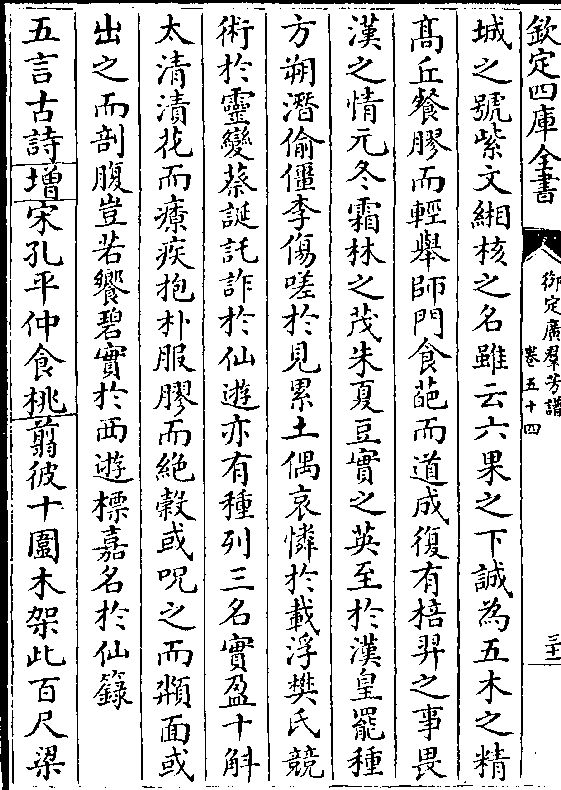 欽定四庫全書
御定廣羣芳譜
卷五十四
三十二
城之號紫文緗核之名雖云六果之下誠為五木之精
髙丘餐膠而輕舉師門食葩而道成復有棓羿之事畏
漢之情元冬霜林之茂朱夏豆實之英至於漢皇罷種
方朔潛偷僵李傷嗟於見累土偶哀憐於載浮樊氏競
術於靈變蔡誕託詐於仙遊亦有種列三名實盈十斛
太清漬花而療疾抱朴服膠而絶穀或呪之而頮面或
出之而剖腹豈若饗碧實於西遊標嘉名於仙籙
五言古詩增宋孔平仲食桃翦彼十圍木架此百尺梁